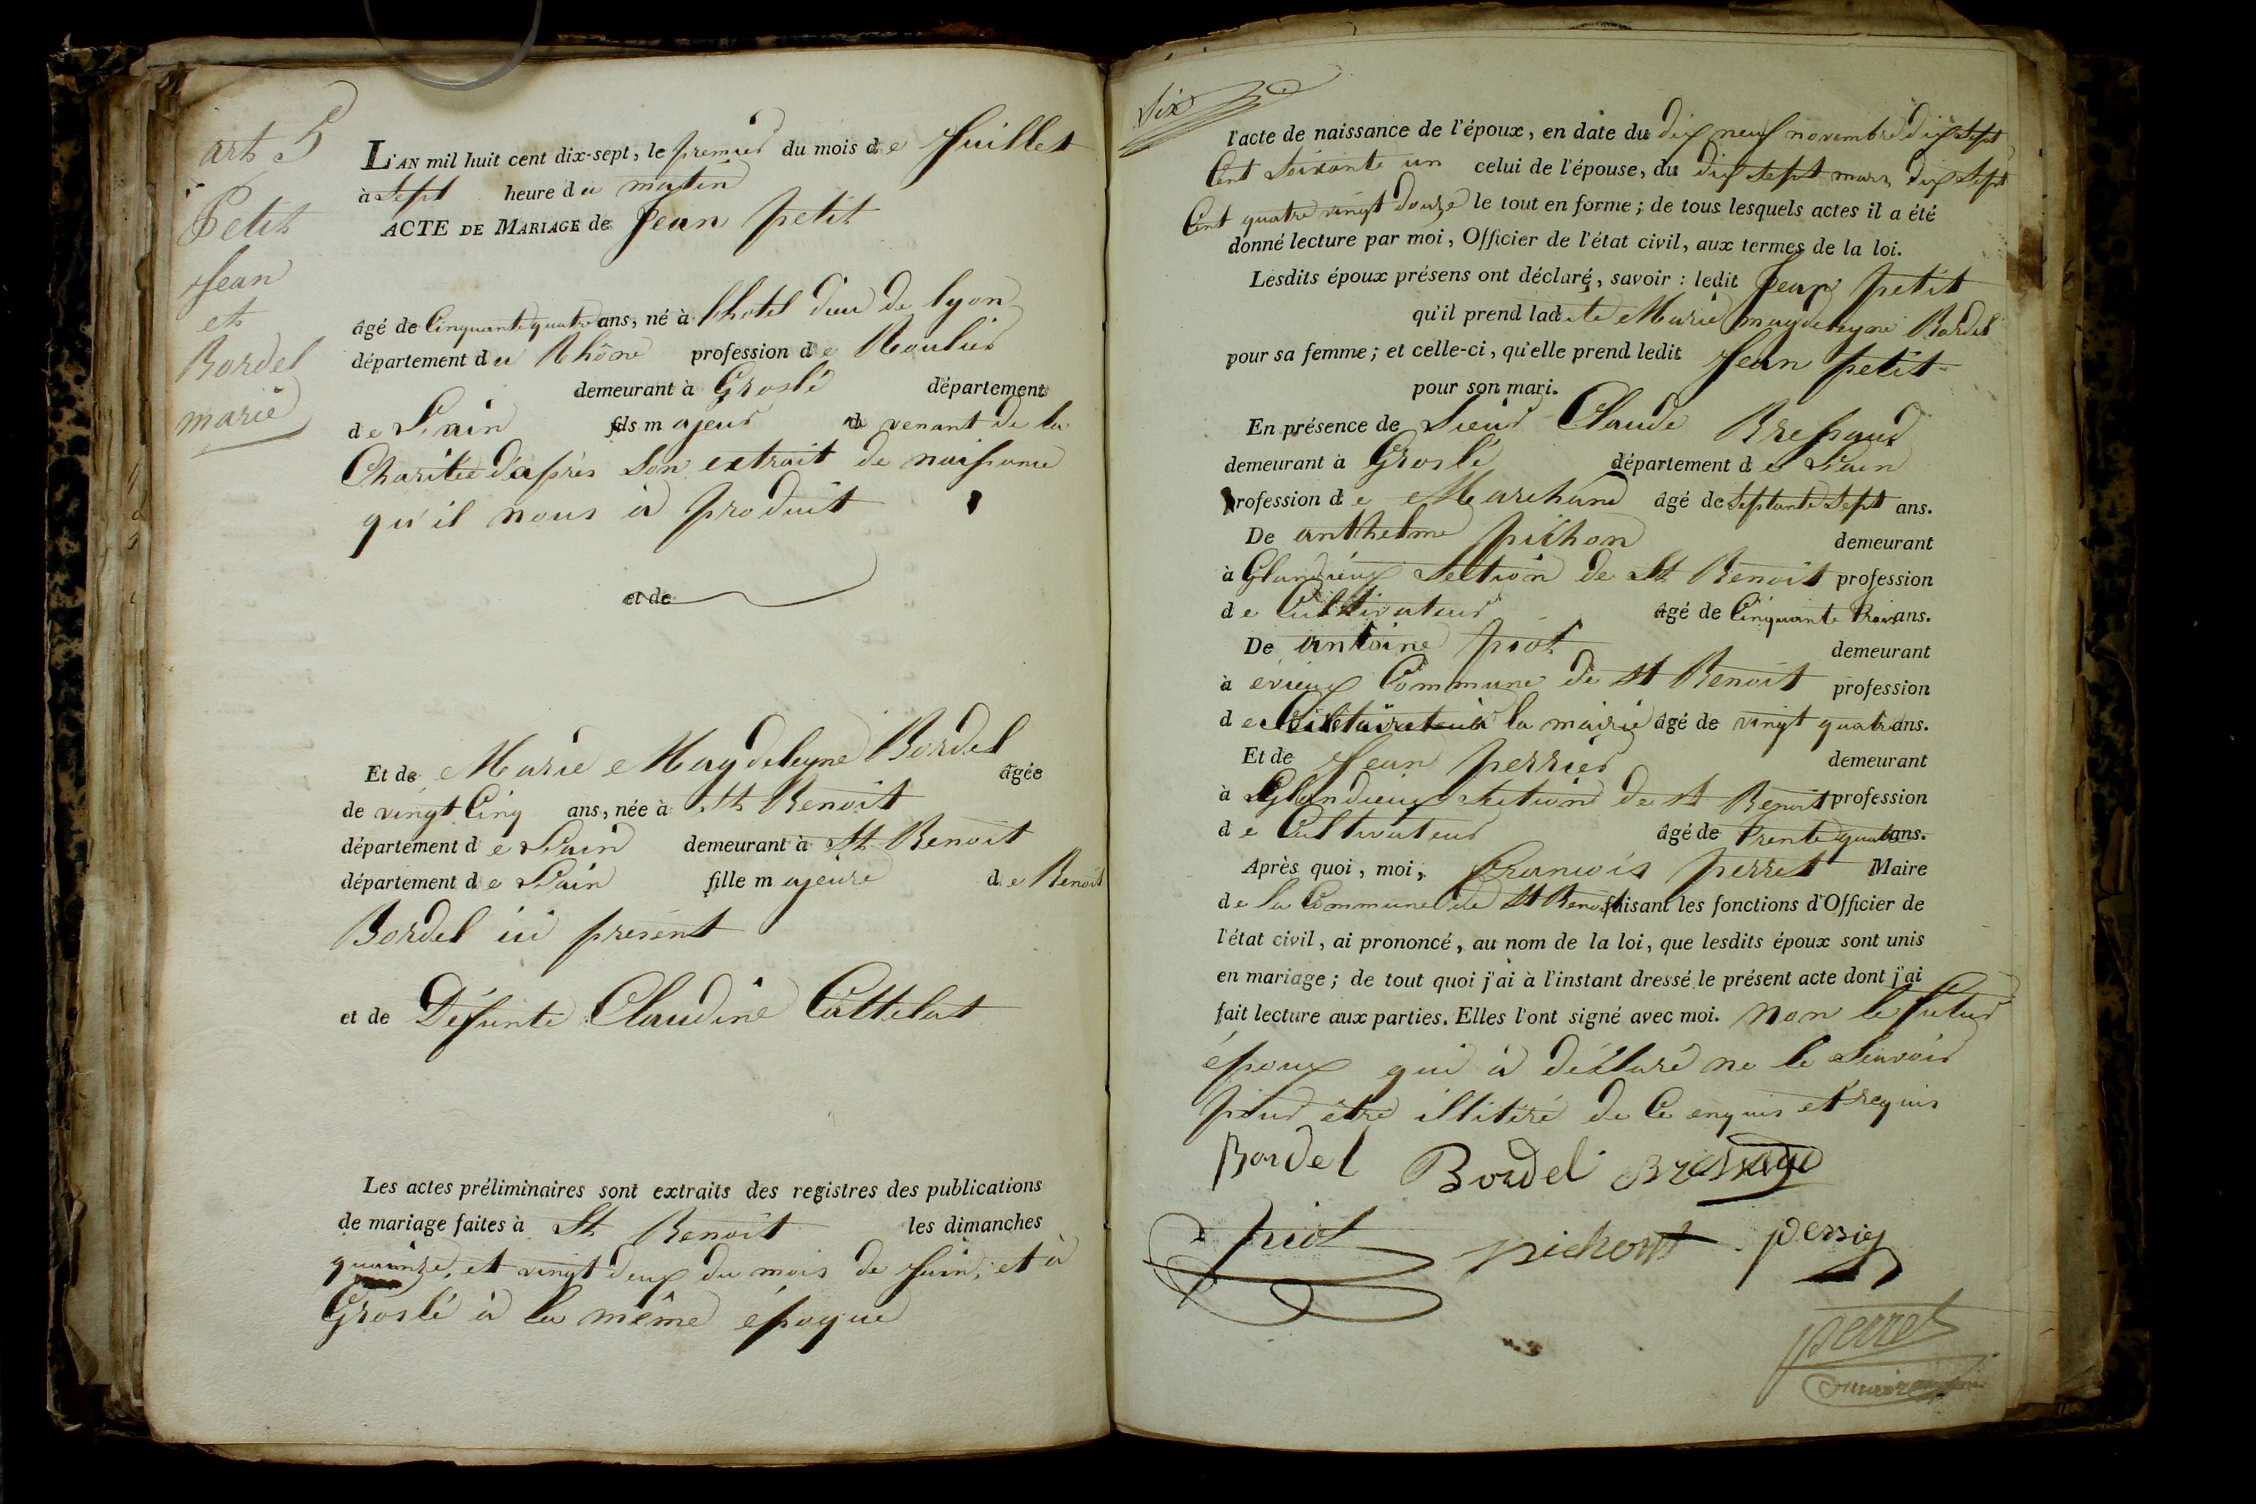 art 5
Petit
Jean
et
Bordel
marie
L'AN mil huit cent dix-sept, le premier du mois de Juillet
à Sept heure du matin
ACTE DE MARIAGE de Jean petit
âgé de Cinquante quatre ans, né à l'hotel dieu de lyon
département du Rhône profession de
demeurant à Groslé département
de L'ain fils majeur de venant de la
Charitée d'après Son extrait de naissance
qu'il nous à produit
et de
Et de Marie Magdeleyne Bordel
âgée
de vingt Cinq ans, née à St Benoit
département de L'ain demeurant à St Benoit
département de L'ain fille majeure de Benoit
Bordel ici présent
et de Défunte Claudine Cattelat
Les actes préliminaires sont extraits des registres des publications
de mariage faites à St Benoit les dimanches
quinze, et vingt deux du mois de Juin, et à
Groslé à la même époque
Six
l'acte de naissance de l'époux, en date du dix neuf novembre dix Sept
Cent Soixante un celui de l'épouse, du dix Sept mars dix Sept
Cent quatre vingt douze le tout en forme; de tous lesquels actes il a été
donné lecture par moi, Officier de l'état civil, aux termes de la loi.
Lesdits époux présens ont déclaré, savoir : ledit Jean petit
qu'il prend ladite Marie magdeleyne Bordel
pour sa femme; et celle-ci, qu'elle prend ledit Jean petit
pour son mari.
En présence de Sieur Claude Bressaud
demeurant à Groslé département de L'ain
profession de Marchand âgé de Septante Sept ans.
De anthelme pichon demeurant
à Glandieux Section de St Benoit profession
de Cultivateur âgé de Cinquante Trois ans.
De antoine piot demeurant
à evieux Commune de St Benoit profession
de la mairie âgé de vingt quatre ans.
Et de Jean perrier demeurant
à Glandieux Section de St Benoit profession
de Cultivateur âgé de Trente quatre ans.
Après quoi, moi, francois perret Maire
de la Commune de St Benoit faisant les fonctions d'Officier de
l'état civil, ai prononcé, au nom de la loi, que lesdits époux sont unis
en mariage; de tout quoi j'ai à l'instant dressé le présent acte dont j'ai
fait lecture aux parties. Elles l'ont signé avec moi. Non le futur
époux qui à déclaré ne le Scavoir
pour être illitéré de Ce enquis et requis
Bordel Bordel
piot pichont perrier
perret
maire